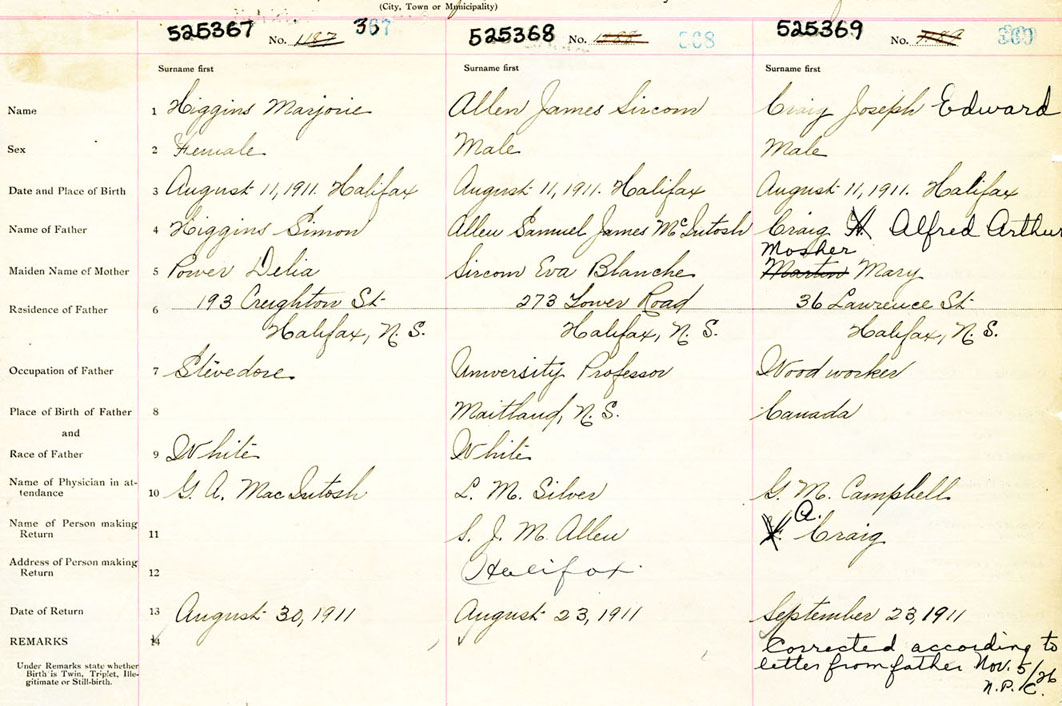 (City, Town or Municipality)
525367 No. 1187 367 525368 No. 1188 368 525369 No. 1189 369
Surname first Surname first Surname first
Name 1 Higgins Marjorie Allen James Sircom Craig Joseph Edward
Sex 2 Female Male Male
Date and Place of Birth 3 August 11, 1911. Halifax August 11, 1911. Halifax August 11, 1911. Halifax
Name of Father 4 Higgins Simon Allen Samuel James McIntosh Craig Alfred Arthur
Mosher
Maiden Name of Mother 5 Power Delia Sircom Eva Blanche Martin Mary
193 Creighton St 273 Tower Road 36 Lawrence St
Residence of Father 6
Halifax, N.S. Halifax, N.S. Halifax, N.S.
Occupation of Father 7 Stevedore University Professor Woodworker
Place of Birth of Father 8 Maitland, N.S. Canada
and
Race of Father 9 White White
Name of Physician in at-
tendance 10 G. A. MacIntosh L. M. Silver G. M. Campbell
Name of Person making
Return 11 S. J. M. Allen A. Craig
Address of Person making
Return 12 Halifax
Date of Return 13 August 30, 1911 August 23, 1911 September 23, 1911
REMARKS 14 Corrected according to
Under Remarks state whether
Birth is Twin, Triplet, Ille-
gitimate or Still-birth.
letter from father Nov. 5/26
N.P.C.